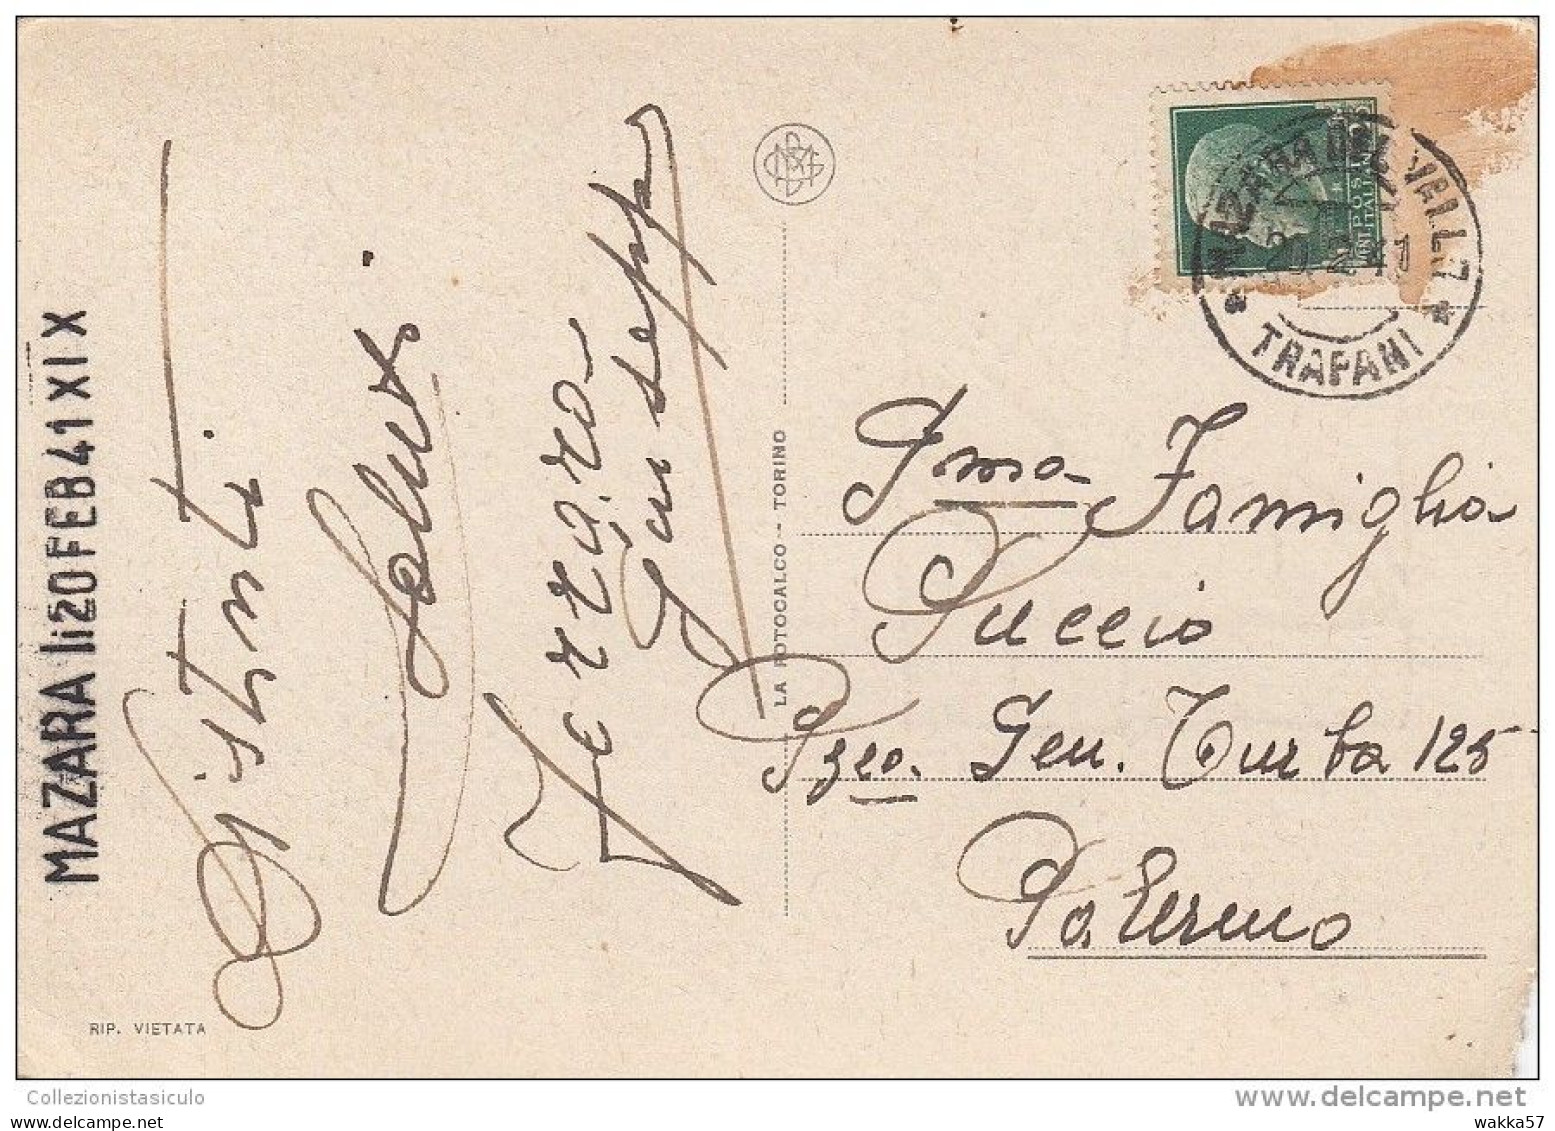 MAZARA li 20 FEB 41 XIX
Distinti
Saluti
Ferraro
Giuseppe
RIP. VIETATA
LA ROTOCALCO - TORINO
MAZARA DEL VALLO
2 41
TRAPANI
POSTE
ITALIANE
Gma Famiglia
Puccio
Pzeo. Gen. Turba 125
Palermo
Collezionistasiculo
delcampe.net
wakka57